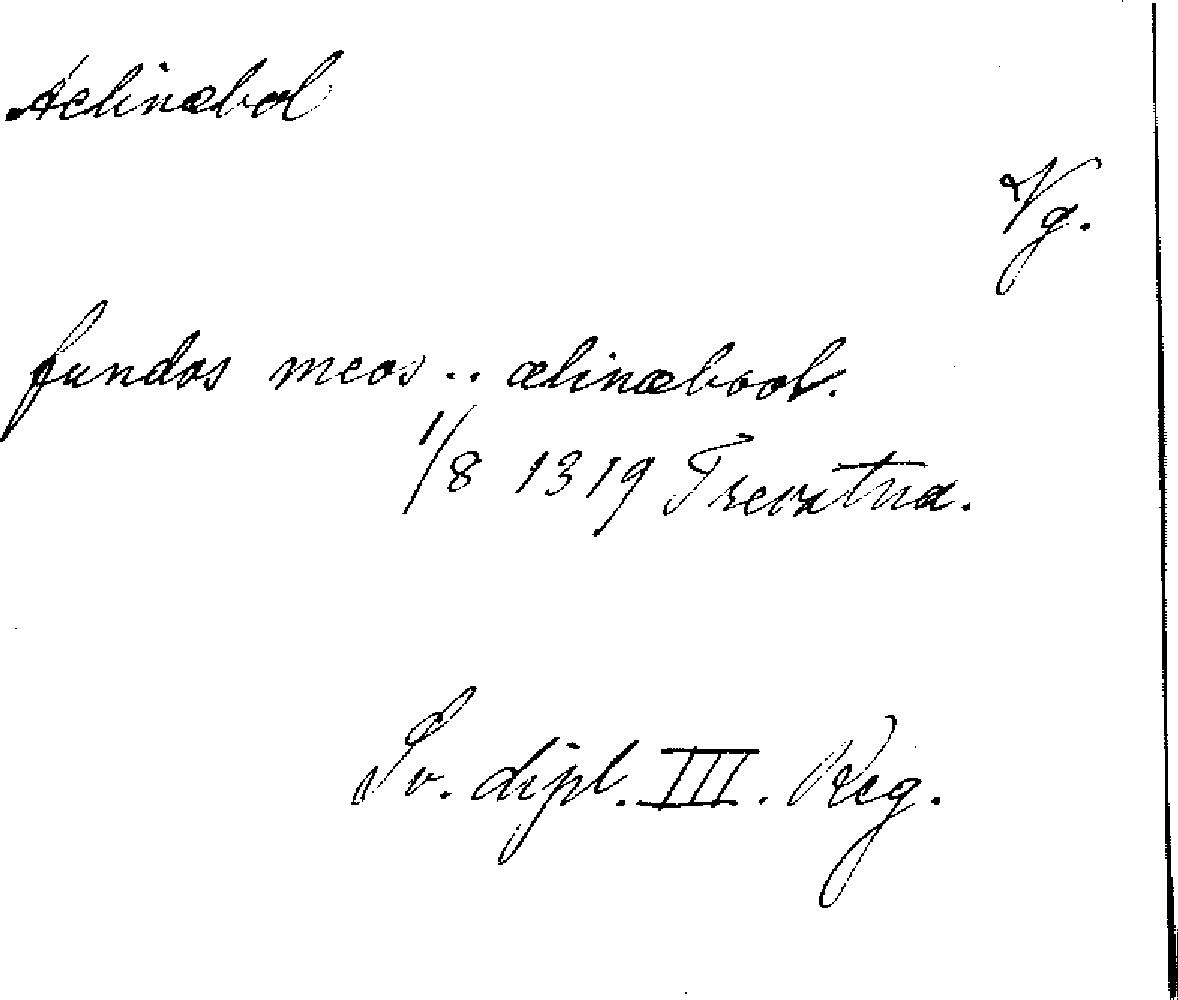 Ælinæbol
Vg.
fundos meos .. ælinæbool.
1/8 1319 Trevatna.
Sv. dipl. III. Reg.